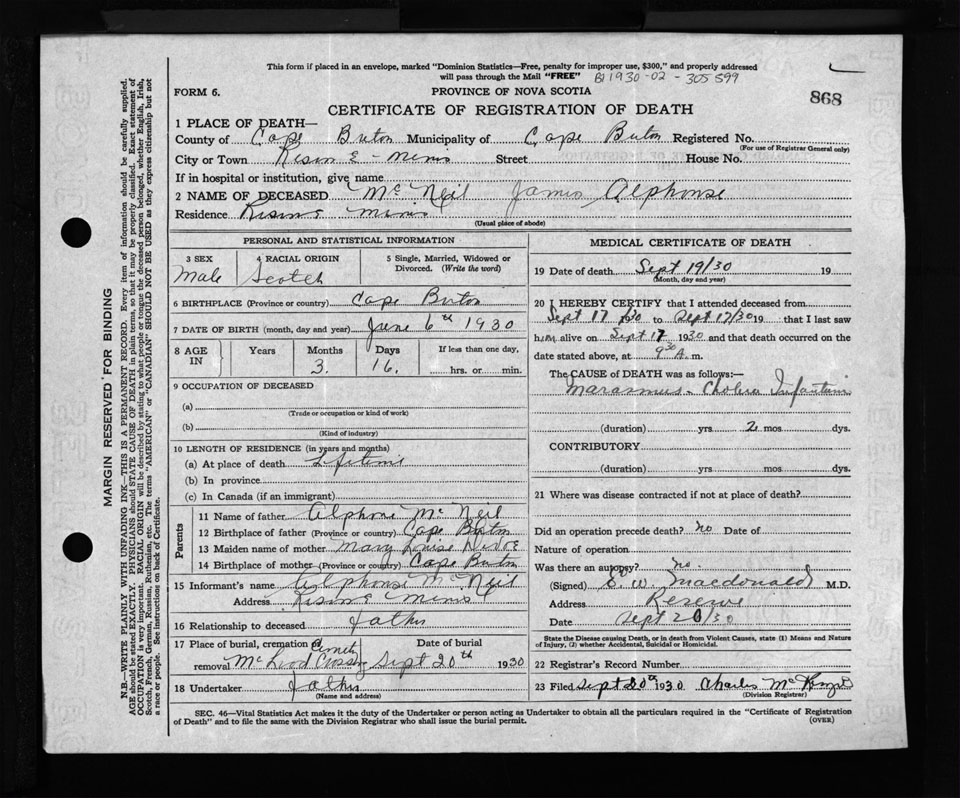 This form if placed in an envelope, marked "Dominion Statistics—Free, penalty for improper use, $300," and properly addressed
will pass through the Mail "FREE" 1930-02-305599
FORM 6. PROVINCE OF NOVA SCOTIA 868
CERTIFICATE OF REGISTRATION OF DEATH
1 PLACE OF DEATH—
County of Cape Breton Municipality of Cape Breton Registered No.
(For use of Registrar General only)
City or Town Rising Mines Street House No.
If in hospital or institution, give name
2 NAME OF DECEASED McNeil James Alphonse
Residence Rising Mines
(Usual place of abode)
PERSONAL AND STATISTICAL INFORMATION
3 SEX 4 RACIAL ORIGIN 5 Single, Married, Widowed or Divorced. (Write the word)
Male Scotch
6 BIRTHPLACE (Province or country) Cape Breton
7 DATE OF BIRTH (month, day and year) June 6th 1930
8 AGE IN Years Months Days If less than one day,
3. 16. hrs. or min.
9 OCCUPATION OF DECEASED
(a)
(Trade or occupation or kind of work)
(b)
(Kind of industry)
10 LENGTH OF RESIDENCE (in years and months)
(a) At place of death Lifetime
(b) In province
(c) In Canada (if an immigrant)
Parents
11 Name of father Alphonse McNeil
12 Birthplace of father (Province or country) Cape Breton
13 Maiden name of mother Mary Louise
14 Birthplace of mother (Province or country) Cape Breton
15 Informant's name Alphonse McNeil
Address Rising Mines
16 Relationship to deceased Father
17 Place of burial, cremation or removal Date of burial
McLeod Crossing Sept 20th 1930
18 Undertaker Father
(Name and address)
MEDICAL CERTIFICATE OF DEATH
19 Date of death Sept 19/30 19
(Month, day and year)
20 I HEREBY CERTIFY that I attended deceased from
Sept 17 1930 to Sept 17/30 19 that I last saw
him alive on Sept 17 1930 and that death occurred on the
date stated above, at 9 30 A. m.
The CAUSE of DEATH was as follows:—
Marasmus - Cholera Infantum
(duration) yrs 2 mos dys.
CONTRIBUTORY
(duration) yrs mos dys.
21 Where was disease contracted if not at place of death?
Did an operation precede death? no Date of
Nature of operation
Was there an autopsy? no.
(Signed) E. W. Macdonald M.D.
Address Reserve
Date Sept 20/30
State the Disease causing Death, or in death from Violent Causes, state (1) Means and Nature
of Injury, (2) whether Accidental, Suicidal or Homicidal.
22 Registrar's Record Number
23 Filed Sept 20th 1930 Charles
(Division Registrar)
SEC. 46—Vital Statistics Act makes it the duty of the Undertaker or person acting as Undertaker to obtain all the particulars required in the "Certificate of Registration
of Death" and to file the same with the Division Registrar who shall issue the burial permit. (OVER)
MARGIN RESERVED FOR BINDING
N.B.—WRITE PLAINLY WITH UNFADING INK—THIS IS A PERMANENT RECORD. Every item of information should be carefully supplied.
AGE should be stated EXACTLY. PHYSICIANS should STATE CAUSE OF DEATH in plain terms, so that it may be properly classified. Exact statement of
OCCUPATION is very important. RACIAL ORIGIN will be described by stating to what people or tongue the deceased person belonged, whether English, Irish,
Scotch, French, German, Russian, Ruthenian, etc. The terms "AMERICAN" or "CANADIAN" SHOULD NOT BE USED as they express citizenship but not
a race or people. See instructions on back of Certificate.